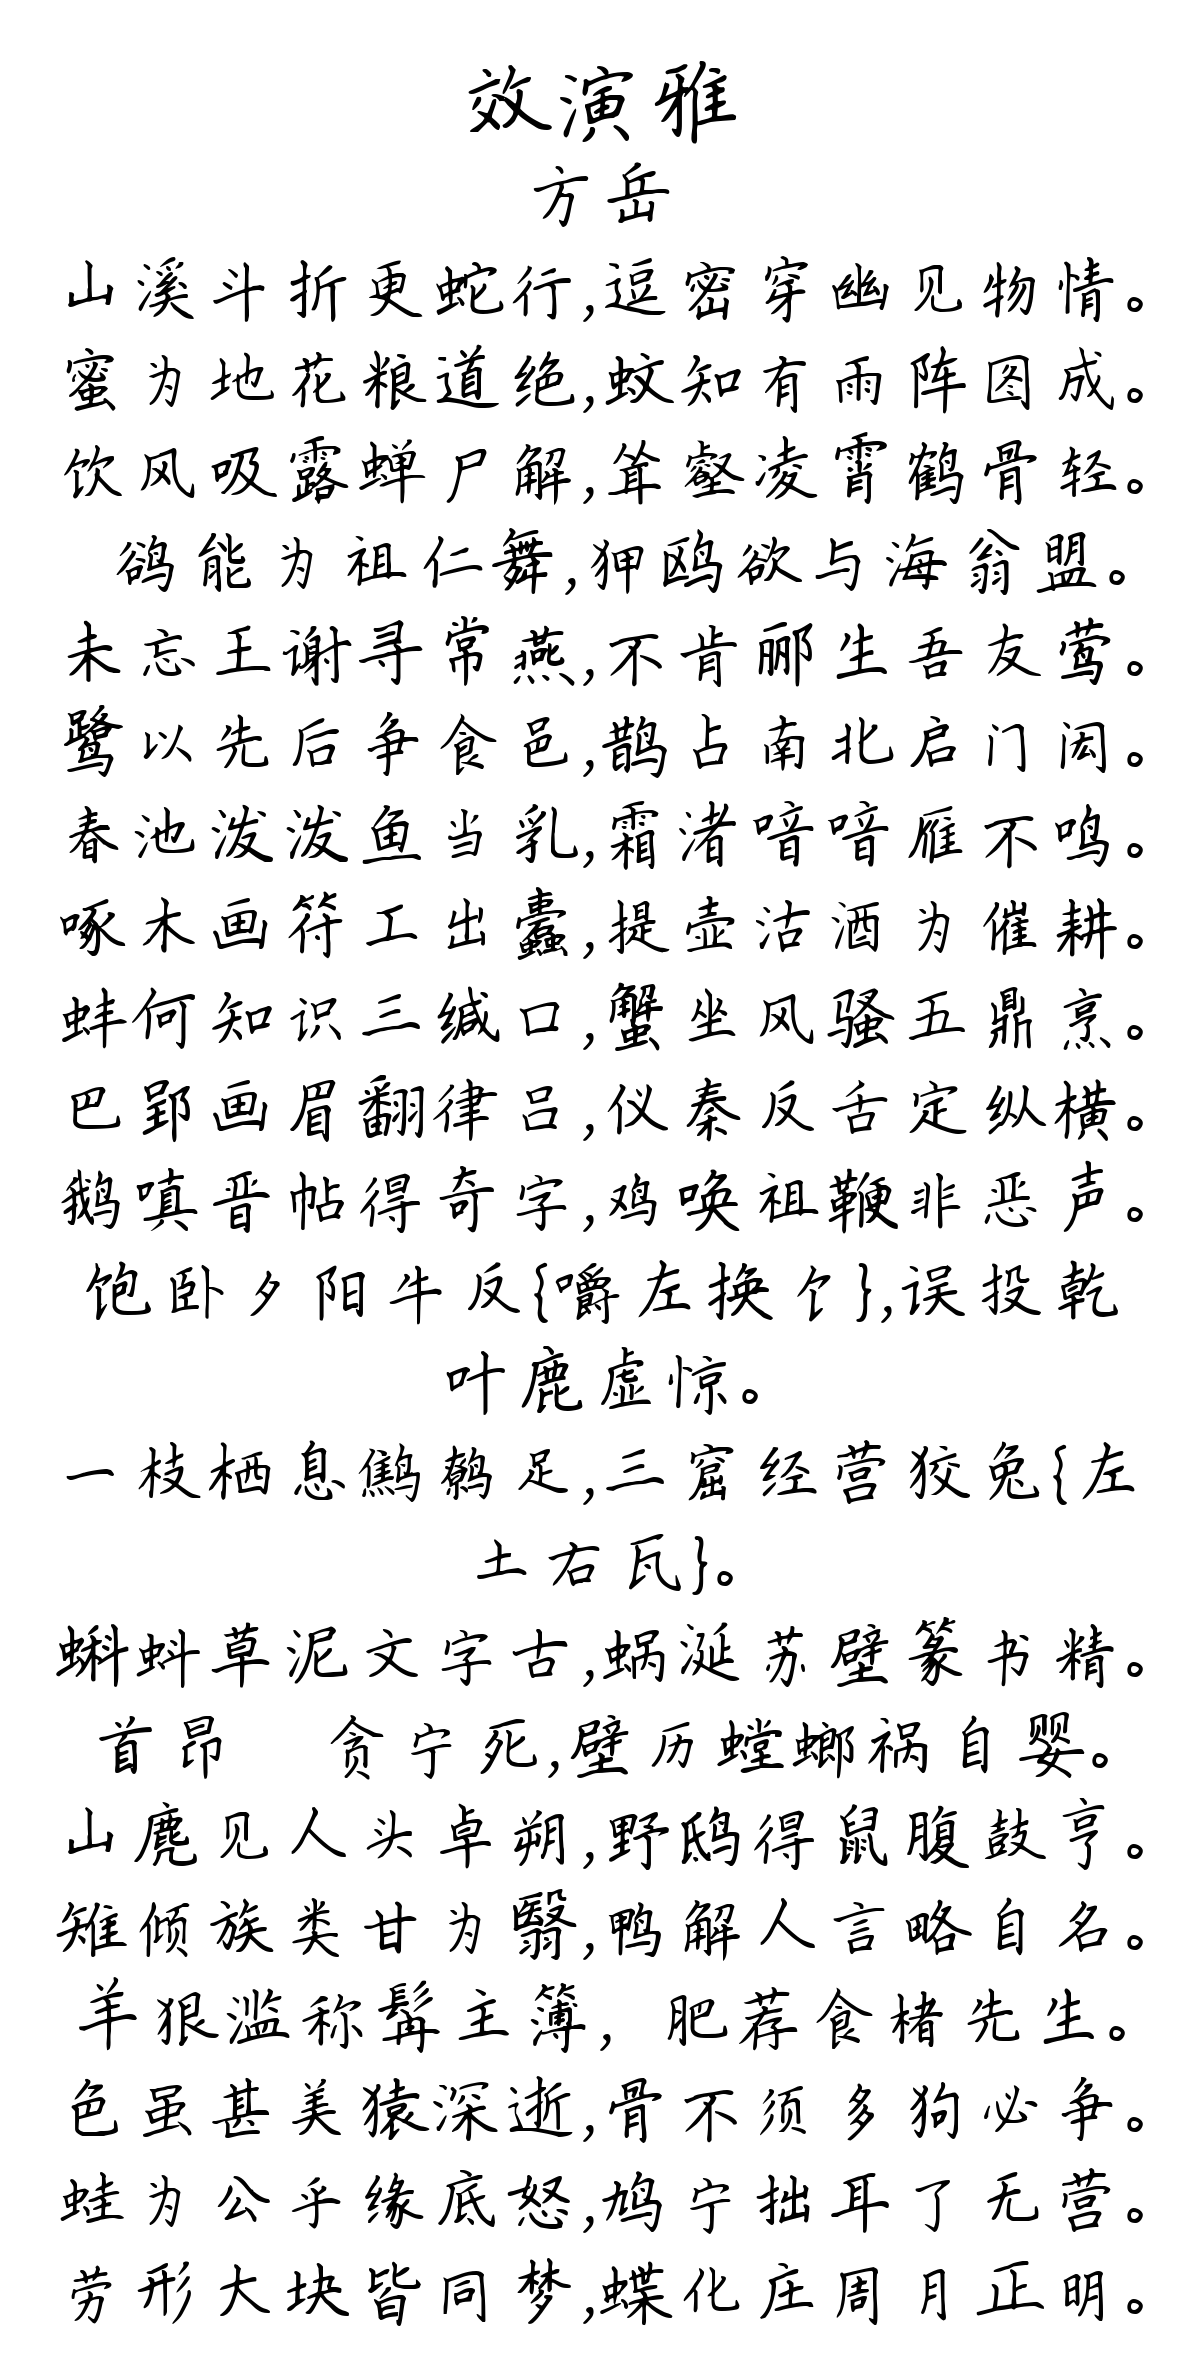 效演雅
方岳
山溪斗折更蛇行,逗密穿幽见物情。
蜜为地花粮道绝,蚊知有雨阵图成。
饮风吸露蝉尸解,耸壑凌霄鹤骨轻。
鹆能为祖仁舞,狎鸥欲与海翁盟。
未忘王谢寻常燕,不肯郦生吾友莺。
鹭以先后争食邑,鹊占南北启门闳。
春池泼泼鱼当乳,霜渚喑喑雁不鸣。
啄木画符工出蠹,提壶沽酒为催耕。
蚌何知识三缄口,蟹坐风骚五鼎烹。
巴郢画眉翻律吕,仪秦反舌定纵横。
鹅嗔晋帖得奇字,鸡唤祖鞭非恶声。
饱卧夕阳牛反{嚼左换饣},误投乾
叶鹿虚惊。
一枝栖息鹪鹩足,三窟经营狡兔{左
土右瓦}。
蝌蚪草泥文字古,蜗涎苏壁篆书精。
首昂 贪宁死,壁历螳螂祸自婴。
山麂见人头卓朔,野鸱得鼠腹鼓亨。
雉倾族类甘为翳,鸭解人言略自名。
羊狠滥称髯主簿，肥荐食楮先生。
色虽甚美猿深逝,骨不须多狗必争。
蛙为公乎缘底怒,鸠宁拙耳了无营。
劳形大块皆同梦,蝶化庄周月正明。